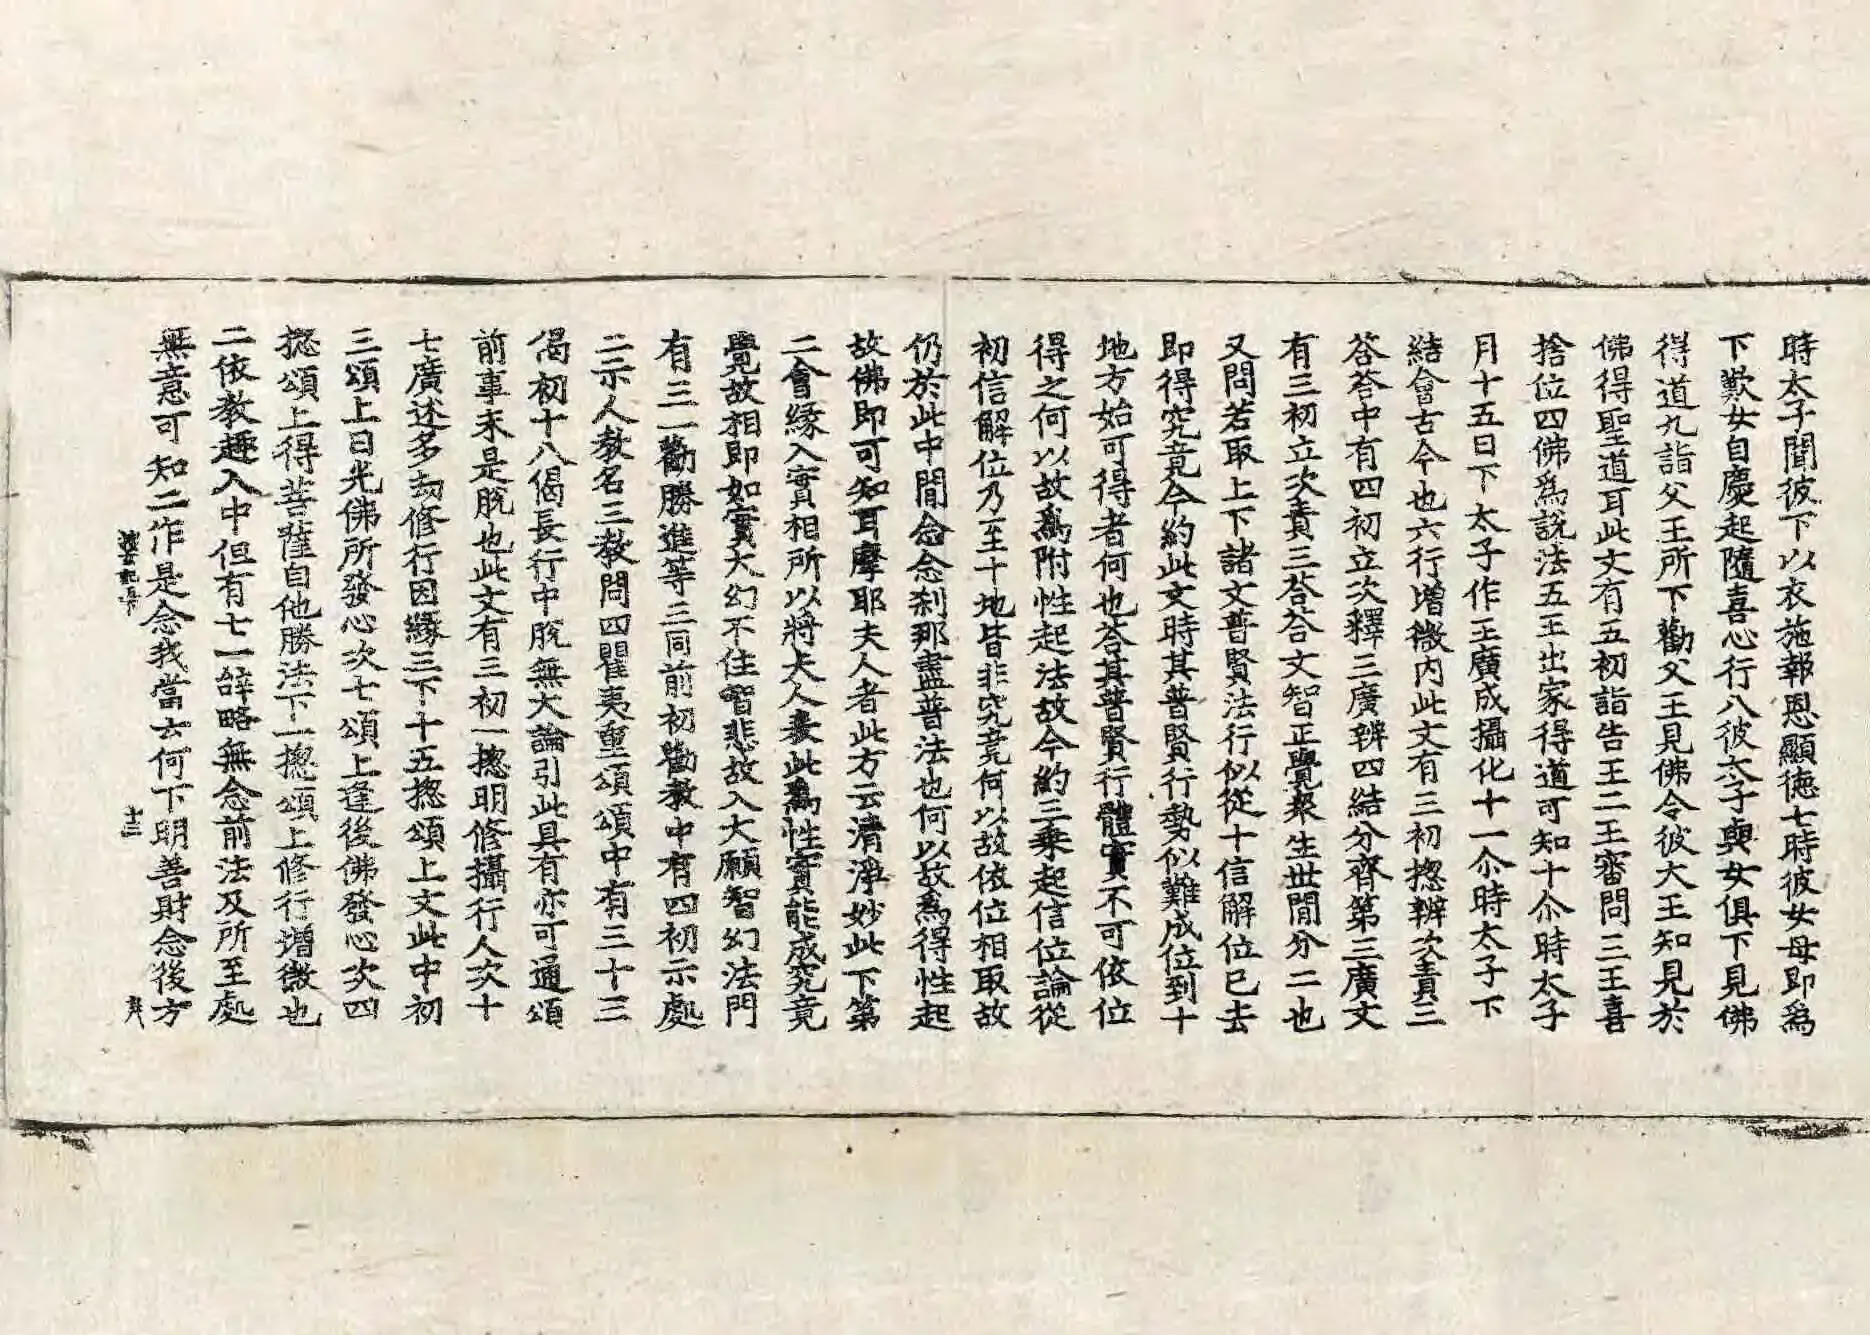 時太子聞彼下以衣施報恩顯德七時彼女母即爲
下歎女自慶起隨喜心行八彼太子與女俱下見佛
得道九詣父王所下勸父王見佛令彼大王知見於
佛得聖道耳此文有五初詣告王二王審問三王喜
捨位四佛爲説法五王出家得道可知十尒時太子
月十五日下太子作王廣成攝化十一尒時太子下
結會古今也六行增微内此文有三初揔辨次責三
荅荅中有四初立次釋三廣辨四結分齊第三廣文
有三初立次責三荅荅文智正覺衆生世間分二也
又問若取上下諸文普賢法行似從十信解位已去
即得究竟今約此文時其普賢行勢似難成位到十
地方始可得者何也荅其普賢行體實不可依位
得之何以故爲附性起法故今約三乗起信位論從
初信解位乃至十地皆非究竟何以故依位相取故
仍於此中間念念刹那盡普法也何以故爲得性起
故佛即可知耳摩耶夫人者此方云清淨妙此下第
二會縁入實相所以將夫人妻此爲性實能成究竟
覺故相即如實大幻不住智悲故入大願智幻法門
有三一勸勝進等三同前初勸教中有四初示處
二示人教名三教問四瞿夷重頌頌中有三十三
偈初十八偈長行中脱無大論引此具有亦可通頌
前事未是脱也此文有三初一揔明修攝行人次十
七廣述多劫修行因縁三下十五揔頌上文此中初
三頌上日光佛所發心次七頌上逢後佛發心次四
揔頌上得菩薩自他勝法下一揔頌上修行增微也
二依教趣入中但有七一辞略無念前法及所至處
無意可知二作是念我當去何下明善財念後方
十三